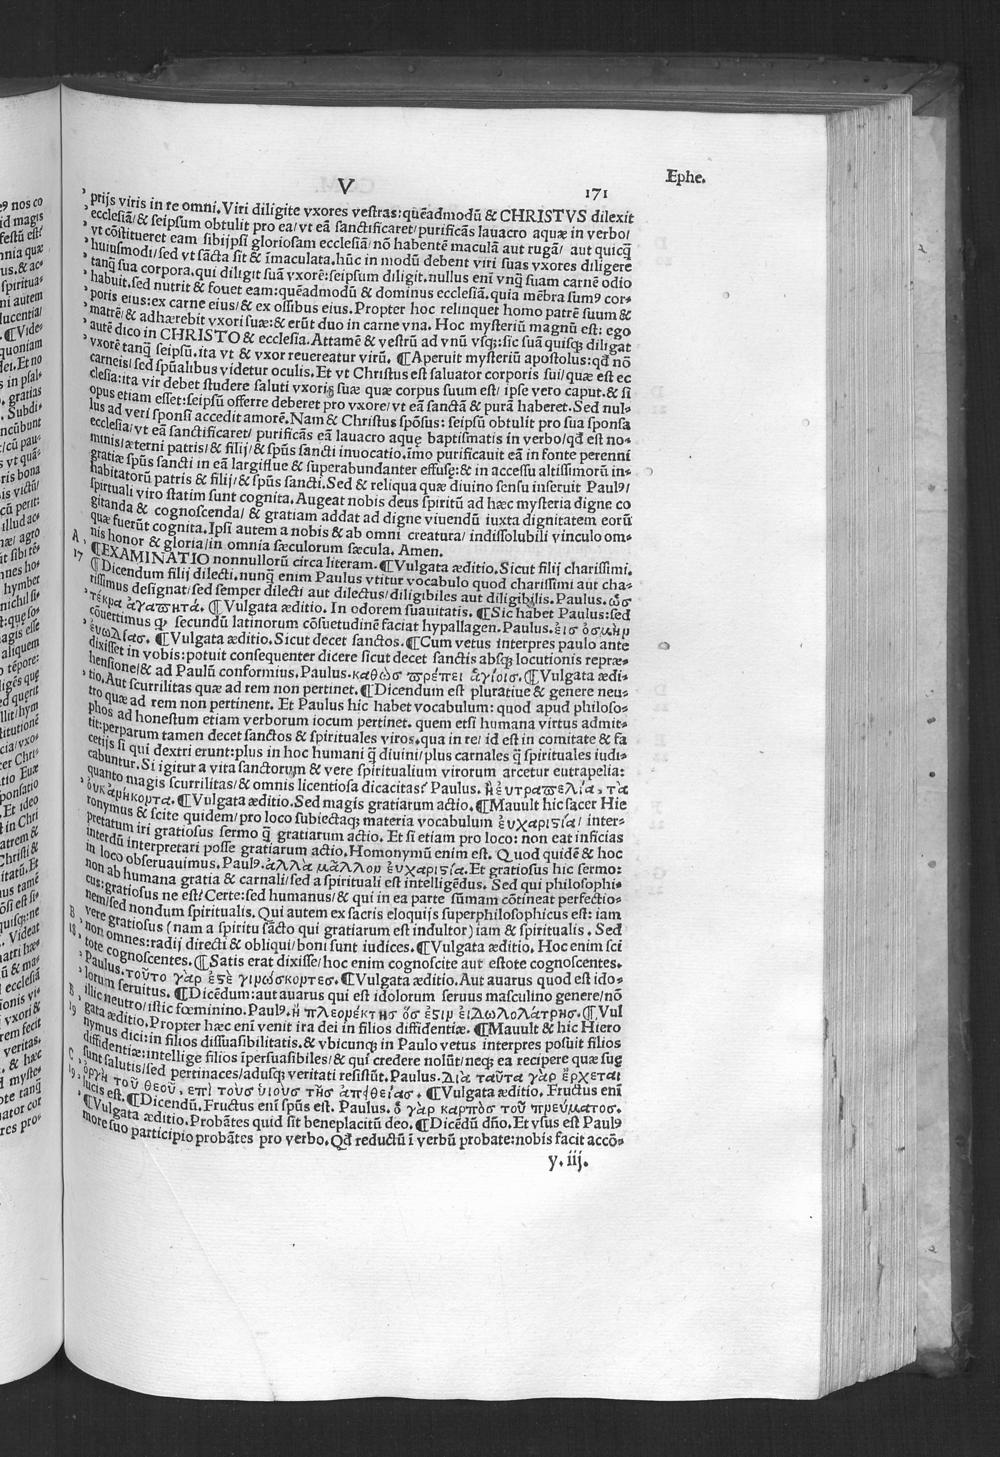 V
171
Ephe.
prijs viris in re omni. Viri diligite vxores vestras: quēadmodū & CHRISTVS dilexit
ecclesiā/ & seipsum obtulit pro ea/ vt eā sanctificaret/ purificās lauacro aquæ in verbo/
vt cōstitueret eam sibijpsi gloriosam ecclesiā/ nō habentē maculā aut rugā/ aut quicq̄
huiusmodi/ sed vt sācta sit & īmaculata. hūc in modū debent viri suas vxores diligere
tanq̄ sua corpora. qui diligit suā vxorē: seipsum diligit. nullus enī vnq̄ suam carnē odio
habuit. sed nutrit & fouet eam: quēadmodū & dominus ecclesiā. quia mēbra sumꝰ cor-
poris eius: ex carne eius/ & ex ossibus eius. Propter hoc relinquet homo patrē suum &
matrē/ & adhærebit vxori suæ: & erūt duo in carne vna. Hoc mysteriū magnū est: ego
autē dico in CHRISTO & ecclesia. Attamē & vestrū ad vnū vsqꝫ: sic suā quisqꝫ diligat
vxorē tanq̄ seipsū. ita vt & vxor reuereatur virū. ¶ Aperuit mysteriū apostolus: qd̄ nō
carneis/ sed spūalibus videtur oculis. Et vt Christus est saluator corporis sui/ quæ est ec
clesia: ita vir debet studere saluti vxoris suæ quæ corpus suum est/ ipse vero caput. & si
opus etiam esset: seipsū offerre deberet pro vxore/ vt eā sanctā & purā haberet. Sed nul-
lus ad veri sponsi accedit amorē. Nam & Christus spōsus: seipsū obtulit pro sua sponsa
ecclesia/ vt eā sanctificaret/ purificās eā lauacro aquę baptismatis in verbo/ qd̄ est no-
minis/ æterni patris/ & filij/ & spūs sancti inuocatio. imo purificauit eā in fonte perenni
gratiæ spūs sancti in eā largiflue & superabundanter effusę: & in accessu altissimorū in-
habitatorū patris & filij/ & spūs sancti. Sed & reliqua quæ diuino sensu inseruit Paulꝰ/
spirtuali viro statim sunt cognita. Augeat nobis deus spiritū ad hæc mysteria digne co
gitanda & cognoscenda/ & gratiam addat ad digne viuendū iuxta dignitatem eorū
quæ fuerūt cognita. Ipsi autem a nobis & ab omni creatura/ indissolubili vinculo om-
nis honor & gloria/ in omnia sæculorum sæcula. Amen.
A ¶ EXAMINATIO nonnullorū circa literam. ¶ Vulgata æditio. Sicut filij charissimi.
17 ¶ Dicendum filij dilecti. nunq̄ enim Paulus vtitur vocabulo quod charissimi aut cha-
rissimus designat/ sed semper dilecti aut dilectus/ diligibiles aut diligibilis. Paulus. ὡσ
τέκνα ἀγαπητά. ¶ Vulgata æditio. In odorem suauitatis. ¶ Sic habet Paulus: sed
cōuertimus qꝫ secundū latinorum cōsuetudinē faciat hypallagen. Paulus. ἐισ ὀσμὴν
ἐυωδίασ. ¶ Vulgata æditio. Sicut decet sanctos. ¶ Cum vetus interpres paulo ante
dixisset in vobis: potuit consequenter dicere sicut decet sanctis absqꝫ locutionis repræ-
hensione/ & ad Paulū conformius. Paulus. καθὼσ πρέπει ἁγίοισ. ¶ Vulgata ædi-
tio. Aut scurrilitas quæ ad rem non pertinet. ¶ Dicendum est pluratiue & genere neu-
tro quæ ad rem non pertinent. Et Paulus hic habet vocabulum: quod apud philoso-
phos ad honestum etiam verborum iocum pertinet. quem etsi humana virtus admit-
tit: perparum tamen decet sanctos & spirituales viros. qua in re/ id est in comitate & fa
cetijs si qui dextri erunt: plus in hoc humani q̄ diuini/ plus carnales q̄ spirituales iudi-
cabuntur. Si igitur a vita sanctorum & vere spiritualium virorum arcetur eutrapelia:
quanto magis scurrilitas/ & omnis licentiosa dicacitas? Paulus. ἢ ἐυτραπελία, τὰ
ὀυκ ἀνήκοντα. ¶ Vulgata æditio. Sed magis gratiarum actio. ¶ Mauult hic sacer Hie
ronymus & scite quidem/ pro loco subiectaqꝫ materia vocabulum ἐυχαριστία/ inter-
pretatum iri gratiosus sermo q̄ gratiarum actio. Et si etiam pro loco: non eat inficias
interdū interpretari posse gratiarum actio. Homonymū enim est. Quod quidē & hoc
in loco obseruauimus. Paulꝰ. ἀλλὰ μᾶλλον ἐυχαριστία. Et gratiosus hic sermo:
non ab humana gratia & carnali/ sed a spirituali est intelligēdus. Sed qui philosophi-
cus: gratiosus ne est? Certe: sed humanus/ & qui in ea parte sūmam cōtineat perfectio-
nem/ sed nondum spiritualis. Qui autem ex sacris eloquijs superphilosophicus est: iam
B vere gratiosus (nam a spiritu sācto qui gratiarum est indultor) iam & spiritualis. Sed
18 non omnes: radij directi & obliqui/ boni sunt iudices. ¶ Vulgata æditio. Hoc enim sci
tote cognoscentes. ¶ Satis erat dixisse/ hoc enim cognoscite aut estote cognoscentes.
Paulus. τοῦτο γὰρ ἐστὲ γινώσκοντεσ. ¶ Vulgata æditio. Aut auarus quod est ido-
lorum seruitus. ¶ Dicēdum: aut auarus qui est idolorum seruus masculino genere/ nō
B illic neutro/ istic fœminino. Paulꝰ. ἢ πλεονέκτησ ὅσ ἐστιν ἐιδωλολάτρησ. ¶ Vul
19 gata æditio. Propter hæc enī venit ira dei in filios diffidentiæ. ¶ Mauult & hic Hiero
nymus dici: in filios dissuasibilitatis. & vbicunqꝫ in Paulo vetus interpres posuit filios
diffidentiæ: intellige filios īpersuasibiles/ & qui credere nolūt/ neqꝫ ea recipere quæ suę
C sunt salutis/ sed pertinaces/ adusqꝫ veritati resistūt. Paulus. Διὰ ταῦτα γὰρ ἔρχεται
19 ὀργὴ τοῦ θεοῦ, επὶ τοὺσ ὑιοὺσ τῆσ ἀπειθείασ. ¶ Vulgata æditio. Fructus enī
lucis est. ¶ Dicendū. Fructus enī spūs est. Paulus. ὁ γὰρ καρπὸσ τοῦ πνεύματοσ.
¶ Vulgata æditio. Probātes quid sit beneplacitū deo. ¶ Dicēdū dn̄o. Et vsus est Paulꝰ
more suo participio probātes pro verbo. Qd̄ reductū ī verbū probate: nobis facit accō-
y. iij.